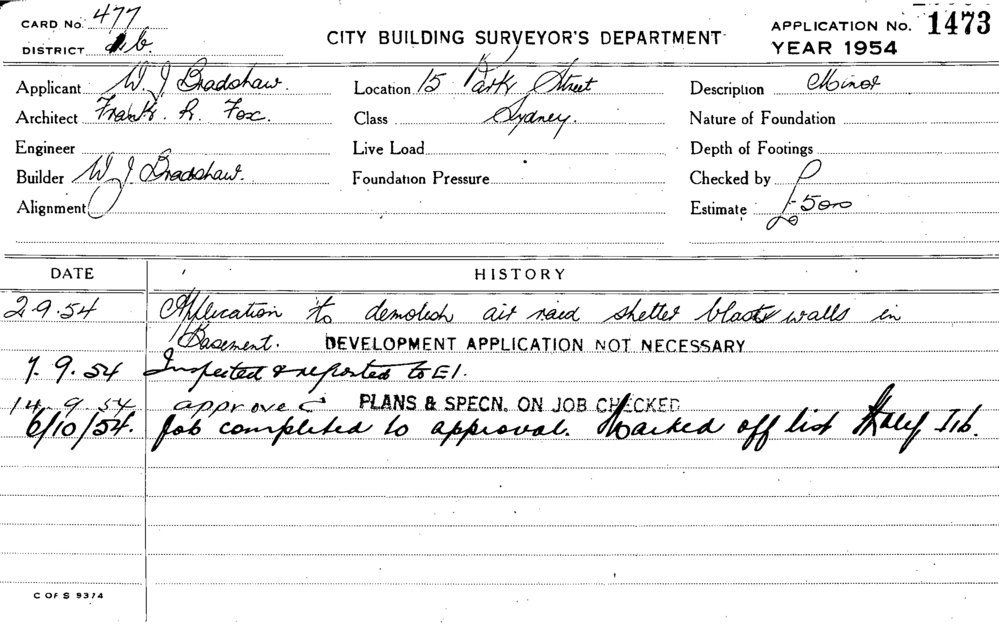 CARD No. 477
DISTRICT b.
CITY BUILDING SURVEYOR'S DEPARTMENT
APPLICATION No. 1473
YEAR 1954
Applicant W. J. Bradshaw.
Location 15 Park Street
Description Minor
Architect Frank. R. Fox.
Class Sydney.
Nature of Foundation
Engineer
Live Load
Depth of Footings
Builder W J Bradshaw.
Foundation Pressure
Checked by
Alignment
Estimate £500
DATE HISTORY
2.9.54 Application to demolish air raid shelter blast walls in
Basement. DEVELOPMENT APPLICATION NOT NECESSARY
7.9.54 Inspected & reported to E1.
14.9.54 approved PLANS & SPECN. ON JOB CHECKED
6/10/54. Job completed to approval. Marked off list
C OF S 9374